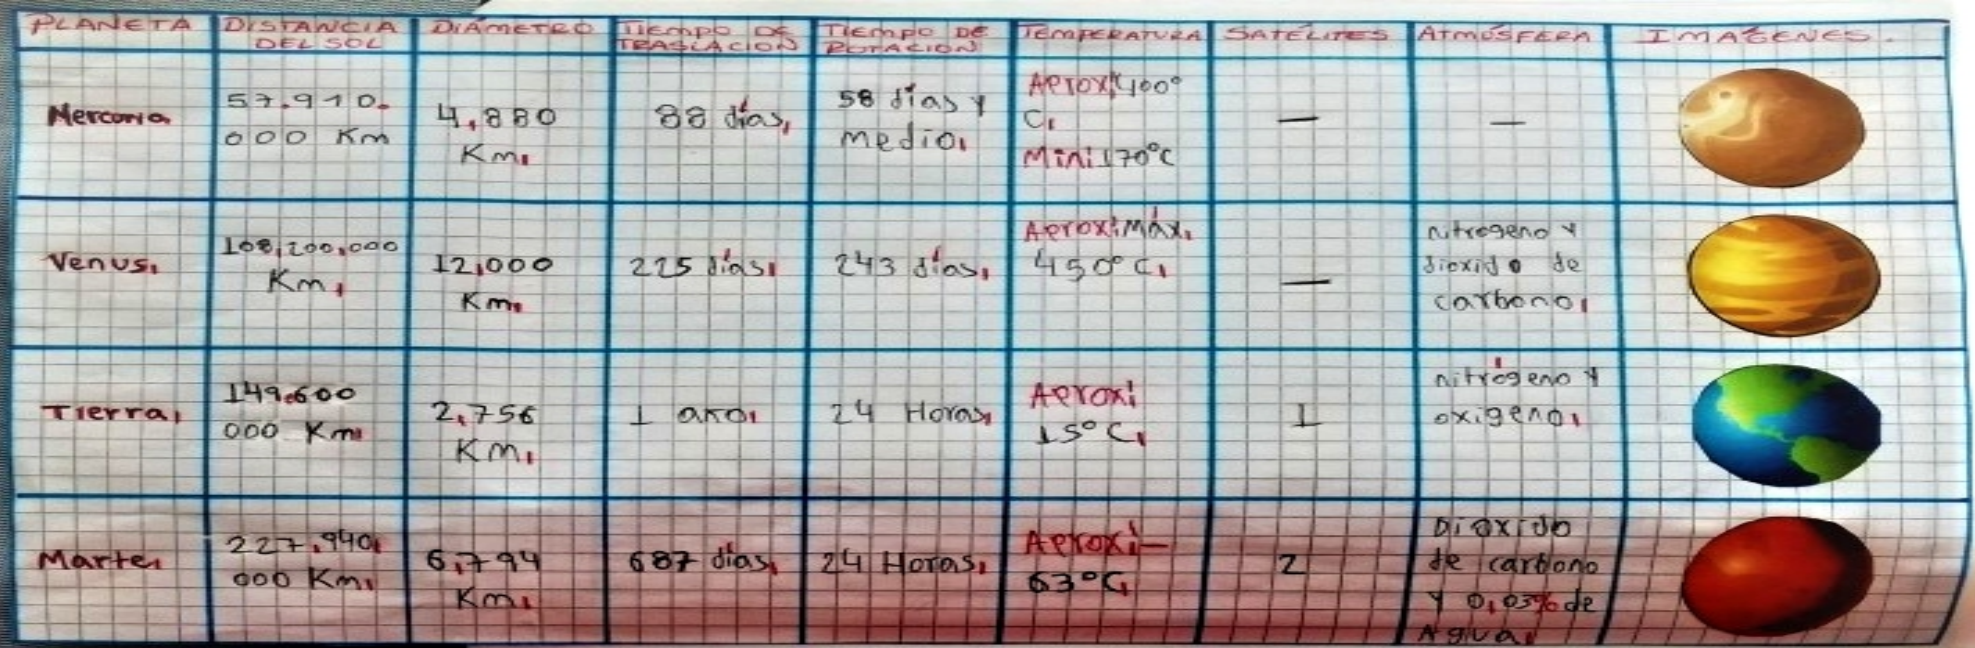 PLANETA
DISTANCIA
DEL SOL
DIÁMETRO
TIEMPO DE
TRASLACIÓN
TIEMPO DE
ROTACIÓN
TEMPERATURA
SATÉLITES
ATMÓSFERA
IMAGENES.
Mercurio
57.910.
000 Km
4,880
Km.
88 días,
58 días y
medio,
Aprox 400°
C,
Mini 170°C
—
—
Venus,
108,200,000
Km,
12,000
Km,
225 días,
243 días,
Aprox: Máx,
450° C,
—
nitrogeno y
dioxido de
carbono,
Tierra,
149.600
000 Km
2,756
Km,
1 ano,
24 Horas,
Aprox:
15° C,
1
nitrógeno y
oxigeno,
Marte,
227.940,
000 Km,
6,794
Km,
687 días,
24 Horas,
Aprox: -
63°C,
2
Dioxido
de carbono
y 0,03% de
Agua,